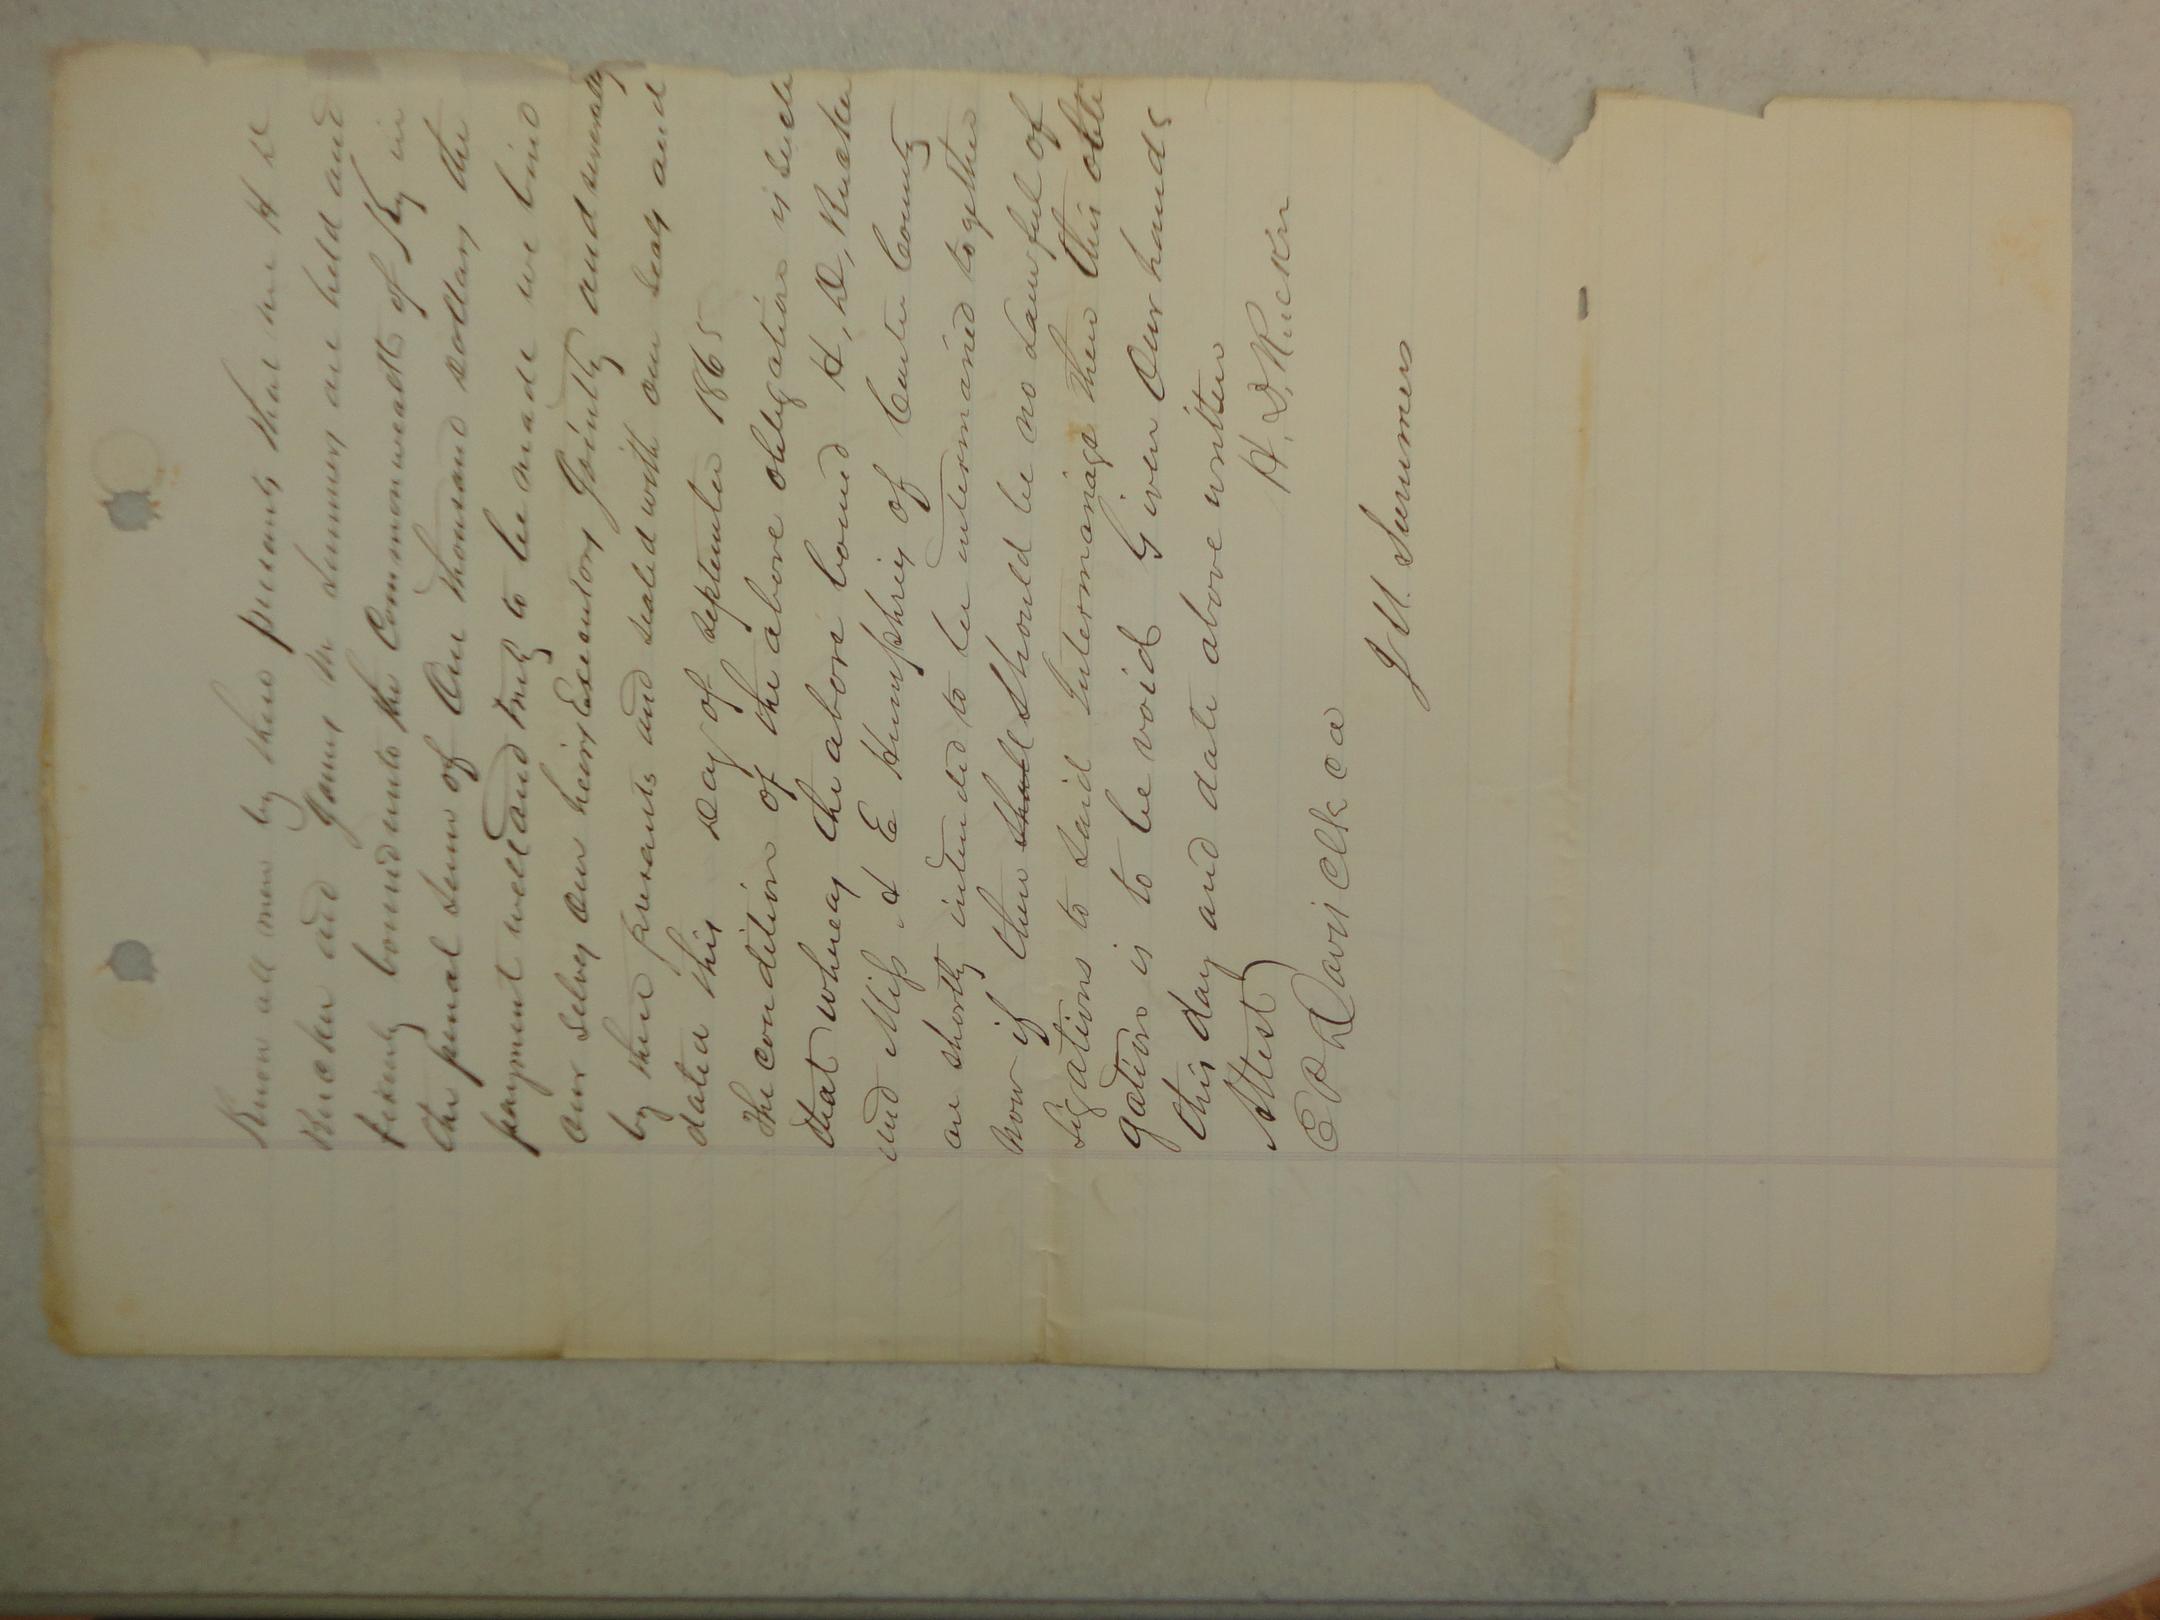 Know all men by these presents that we H D
Rucker and James M Summers are held and
firmly bound unto the Commonwealth of Ky in
the penal sum of One thousand dollars the
payment well and truly to be made we bind
our selves our heirs Executors Jointly and severally
by these presants and sealed with our seals and
dated this Day of September 1865
The condition of the above obligation is such
that whereas the above bound H, D, Rucker
and Miss A E Humphries of Carter County
are shortly intended to be intermarried together
Now if there shall should be no Lawful of
ligations to said Intermariage then this obli
gation is to be void Given Our hands
this day and date above written
Attest H. D, Rucker
E P Davis Clk CC
J M. Summers